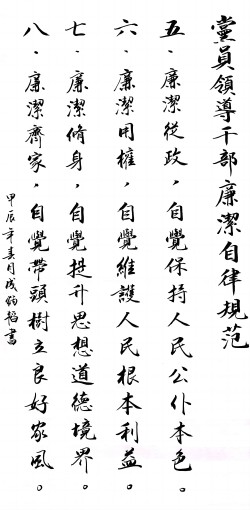 黨員領導干部廉潔自律規范
五、廉潔從政，自覺保持人民公仆本色。
六、廉潔用權，自覺維護人民根本利益。
七、廉潔脩身，自覺提升思想道德境界。
八、廉潔齊家，自覺帶頭樹立良好家風。
甲辰年春月成鈞韜書